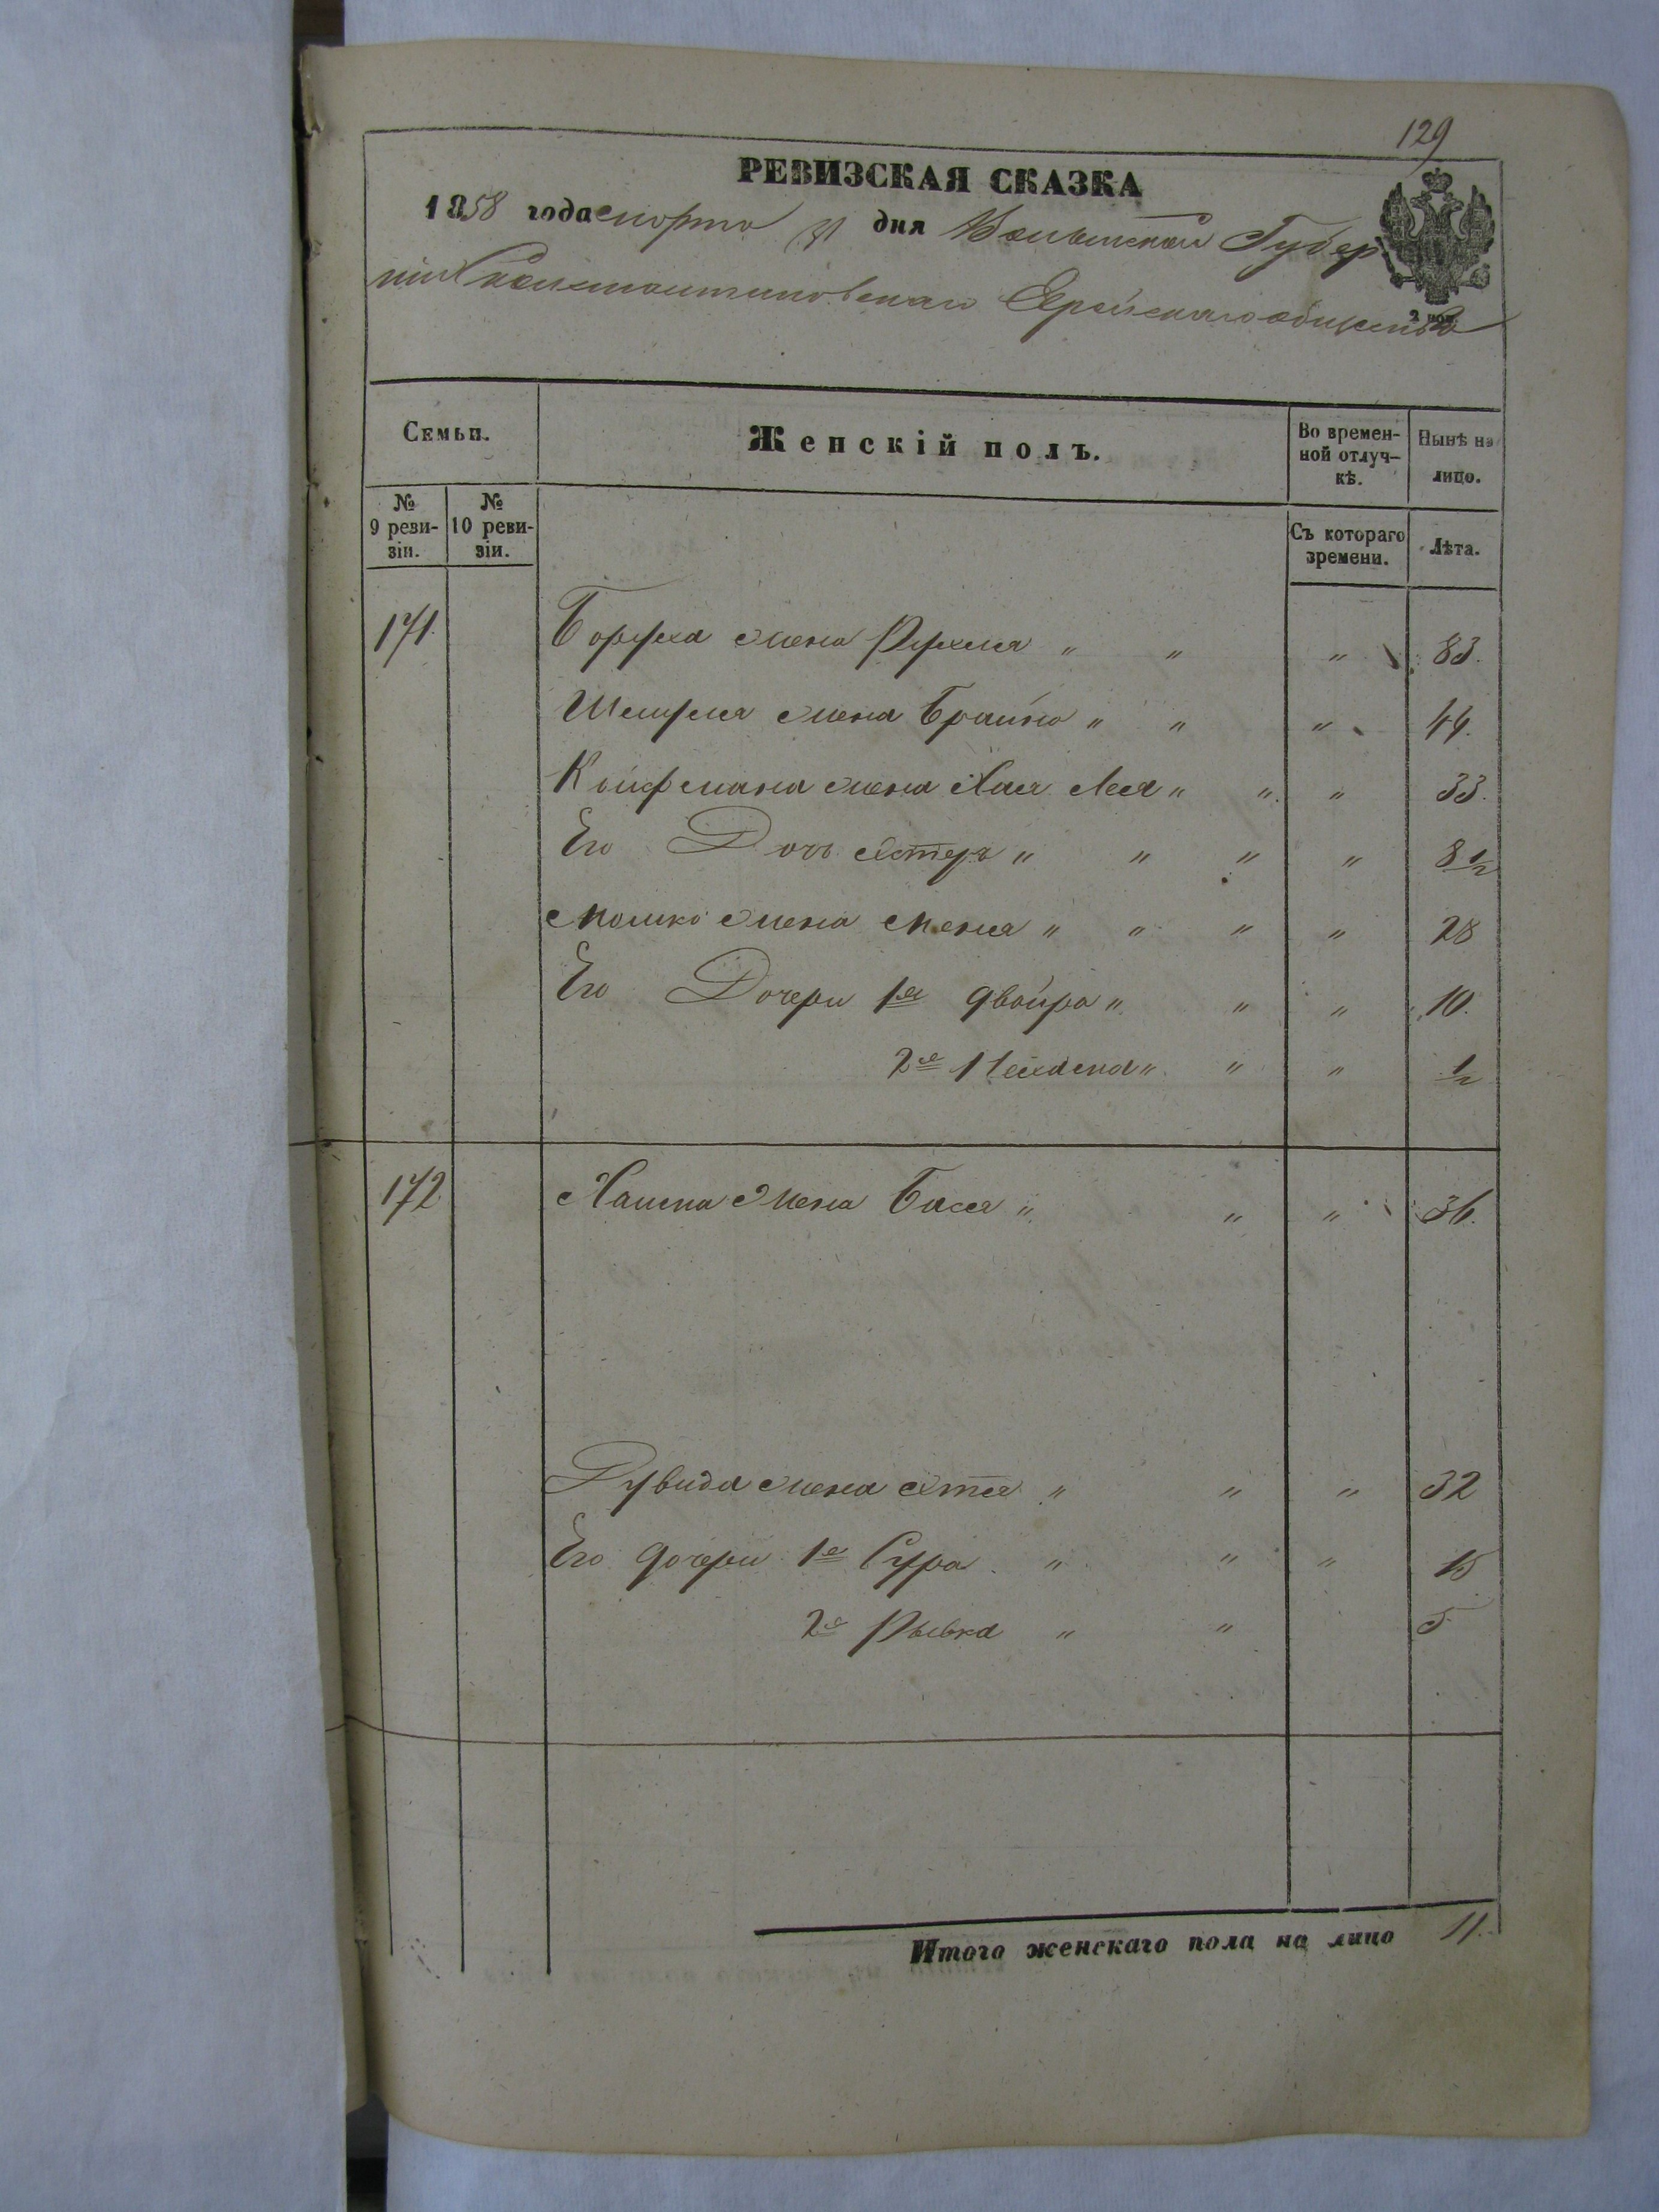 129
РЕВИЗСКАЯ СКАЗКА
1858 года марта 31 дня Волынской Губер
нии Константиновскаго Еврейскаго общества
2 пол.
Семьи.
Женскій полъ.
Во времен-
ной отлуч-
кѣ.
Нынѣ на
лицо.
№
9 реви-
зіи.
№
10 реви-
зіи.
Съ котораго
времени.
Лѣта.
171. Боруха жена Рухля " " " 83.
жена Брайна " " " 44.
Койфмана жена Хая Лея " " " 33.
Его Дочь Эстеръ " " " " 8 1/2
Мошка жена Меня " " " " 28
Его Дочери 1я Двойра " " " 10.
2я " " " 1/2
172 Хаима жена Бася " " " 36.
Рувина жена " " " 32
Его дочери 1я Сура " " " 15
2я Рывка " " 5
Итого женскаго пола на лицо 11.